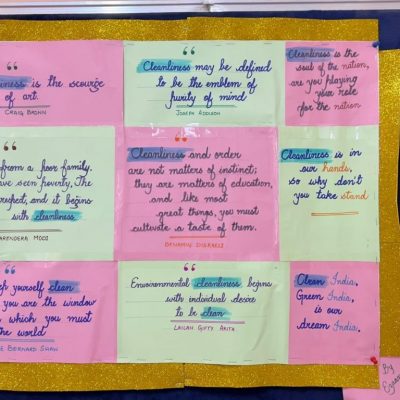 iness is the scourge
of art.
CRAIG BROWN
Cleanliness may be defined
to be the emblem of
purity of mind
JOSEPH ADDISON
Cleanliness is the
soul of the nation,
are you playing
your role
for the nation
from a poor family.
ave seen poverty. The
respect, and it begins
with cleanliness
NARENDRA MODI
Cleanliness and order
are not matters of instinct;
they are matters of education,
and like most
great things, you must
cultivate a taste of them.
BENJAMIN DISRAELI
Cleanliness is in
our hands,
so why don't
you take stand
yourself clean
you are the window
which you must
the world
E BERNARD SHAW
Environmental cleanliness begins
with individual desire
to be clean
LAILAH GIFTY AKITA
Clean India,
Green India,
is our
dream India.
By